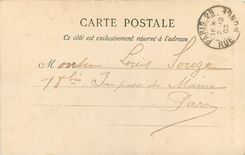 CARTE POSTALE
Ce côté est exclusivement réservé à l'adresse
PARIS 25
RUE
Monsieur Louis Souze
18bis Impasse du Maine
Paris